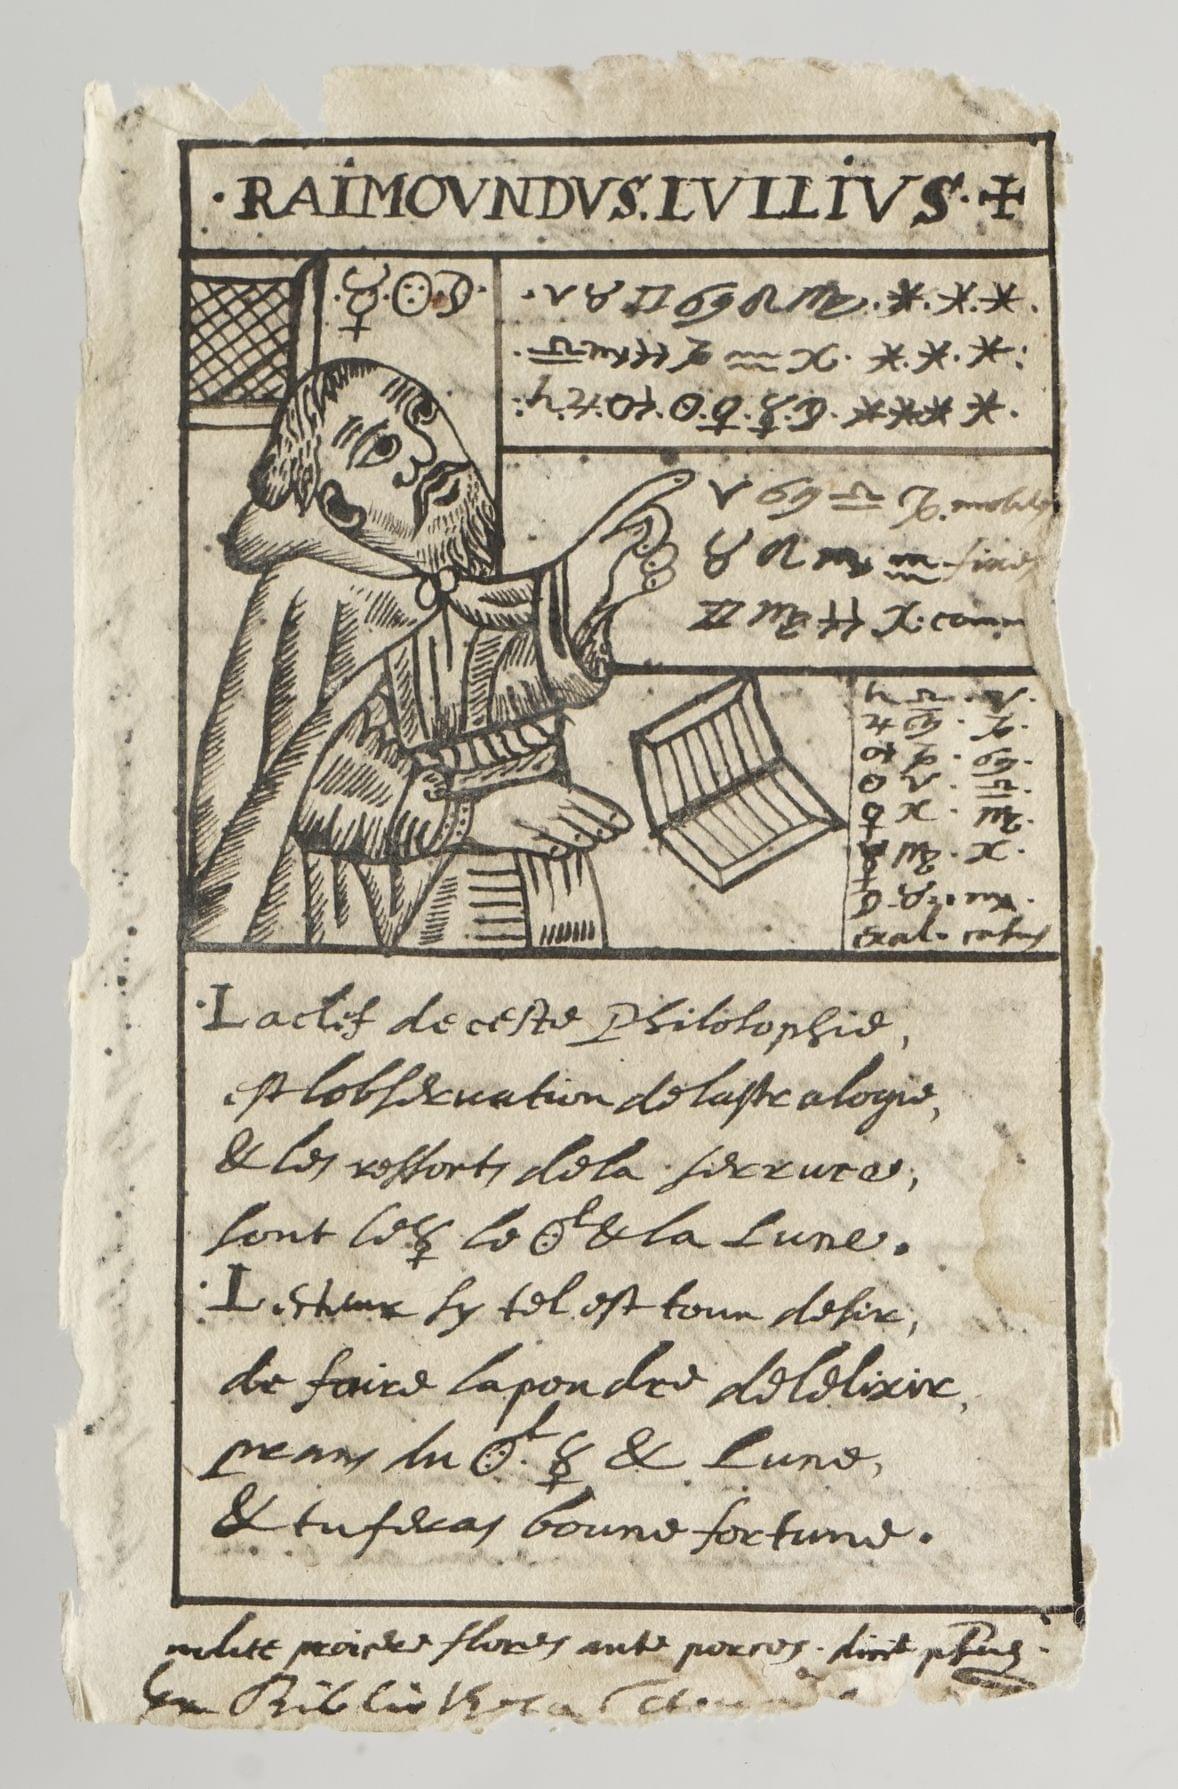 ·RAIMOVNDVS.LVLLIVS·✠
·☿·☉☽·
·♈♉♊♋♌♍·*·*·*·
·♎♏♐♑♒♓· *·*·*:
:♄·♃·♂·☉·♀·☿·☽·****·
♈♋♎♑ mobil
♉♌♏♒ fixes
♊♍♐♓·comm
♄ ♎ · ♈·
♃ ♋ · ♑·
♂ ♑ · ♋·
☉ ♈ · ♎·
♀ ♓ · ♍·
☿ ♍ · ♓·
☽ ♉ · ♏·
exal· casus
·La clef de ceste Philosophie,
est lobseruation de lastralogie,
& les ressorts de la serrure,
sont le ☿ le ☉l & la Lune.
·Lecteur sy tel est toun desir,
de faire la poudre de lelixir,
prans du ☉l· ☿ & Lune,
& tu feras boune fortune.
nolite proicere flores ante porcos· dixit
Ex Bibliotheca